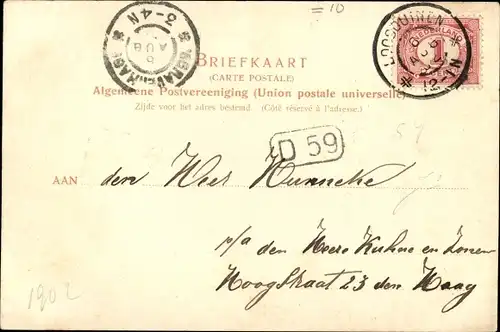 = 10
LOOSDUINEN
6 AUG
12-1N
NEDERLAND
1
'S GRAVENHAGE
6 AUG
3-4N
BRIEFKAART
(CARTE POSTALE)
Algemeene Postvereeniging (Union postale universelle)
Zijde voor het adres bestemd. (Côté réservé à l'adresse.)
D 59
57
AAN den Heer Hunneke
p/a den Heere Kuhne en Zonen
Hoogstraat 23 den Haag
1902